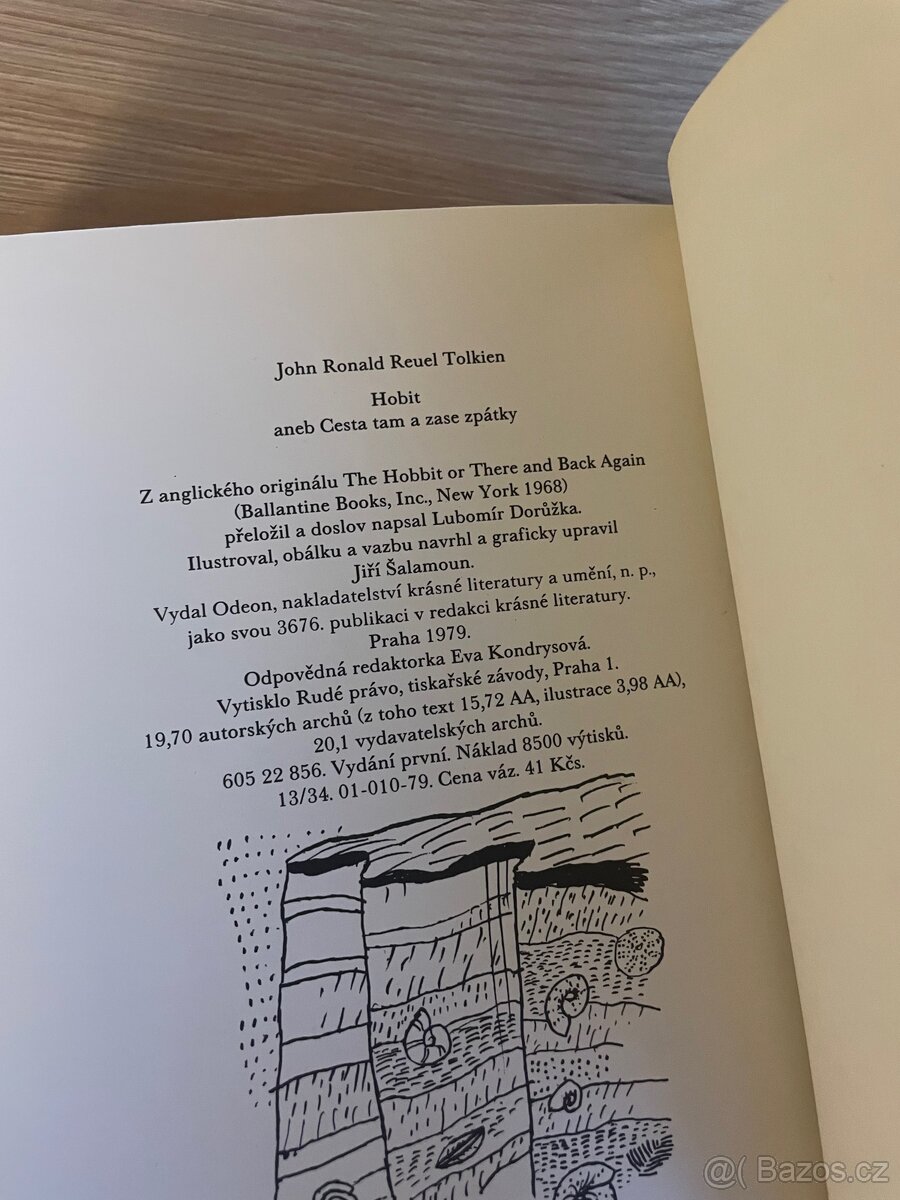 John Ronald Reuel Tolkien
Hobit
aneb Cesta tam a zase zpátky
Z anglického originálu The Hobbit or There and Back Again
(Ballantine Books, Inc., New York 1968)
přeložil a doslov napsal Lubomír Dorůžka.
Ilustroval, obálku a vazbu navrhl a graficky upravil
Jiří Šalamoun.
Vydal Odeon, nakladatelství krásné literatury a umění, n. p.,
jako svou 3676. publikaci v redakci krásné literatury.
Praha 1979.
Odpovědná redaktorka Eva Kondrysová.
Vytisklo Rudé právo, tiskařské závody, Praha 1.
19,70 autorských archů (z toho text 15,72 AA, ilustrace 3,98 AA),
20,1 vydavatelských archů.
605 22 856. Vydání první. Náklad 8500 výtisků.
13/34. 01-010-79. Cena váz. 41 Kčs.
@( Bazos.cz